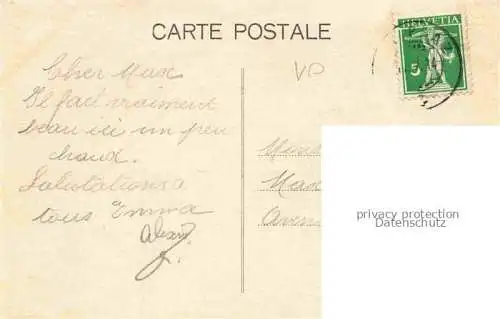 CARTE POSTALE
HELVETIA
5
VD
Cher Max
Il fait vraiment
beau ici un peu
chaud.
Salutations à
tous Emma
Max
Aven
privacy protection
Datenschutz